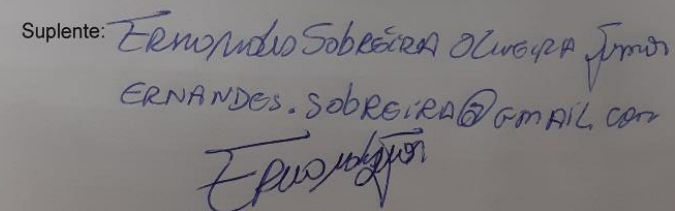 Suplente: Ernandes Sobreira Oliveira Junior
ERNANDES.SOBREIRA@GMAIL.COM